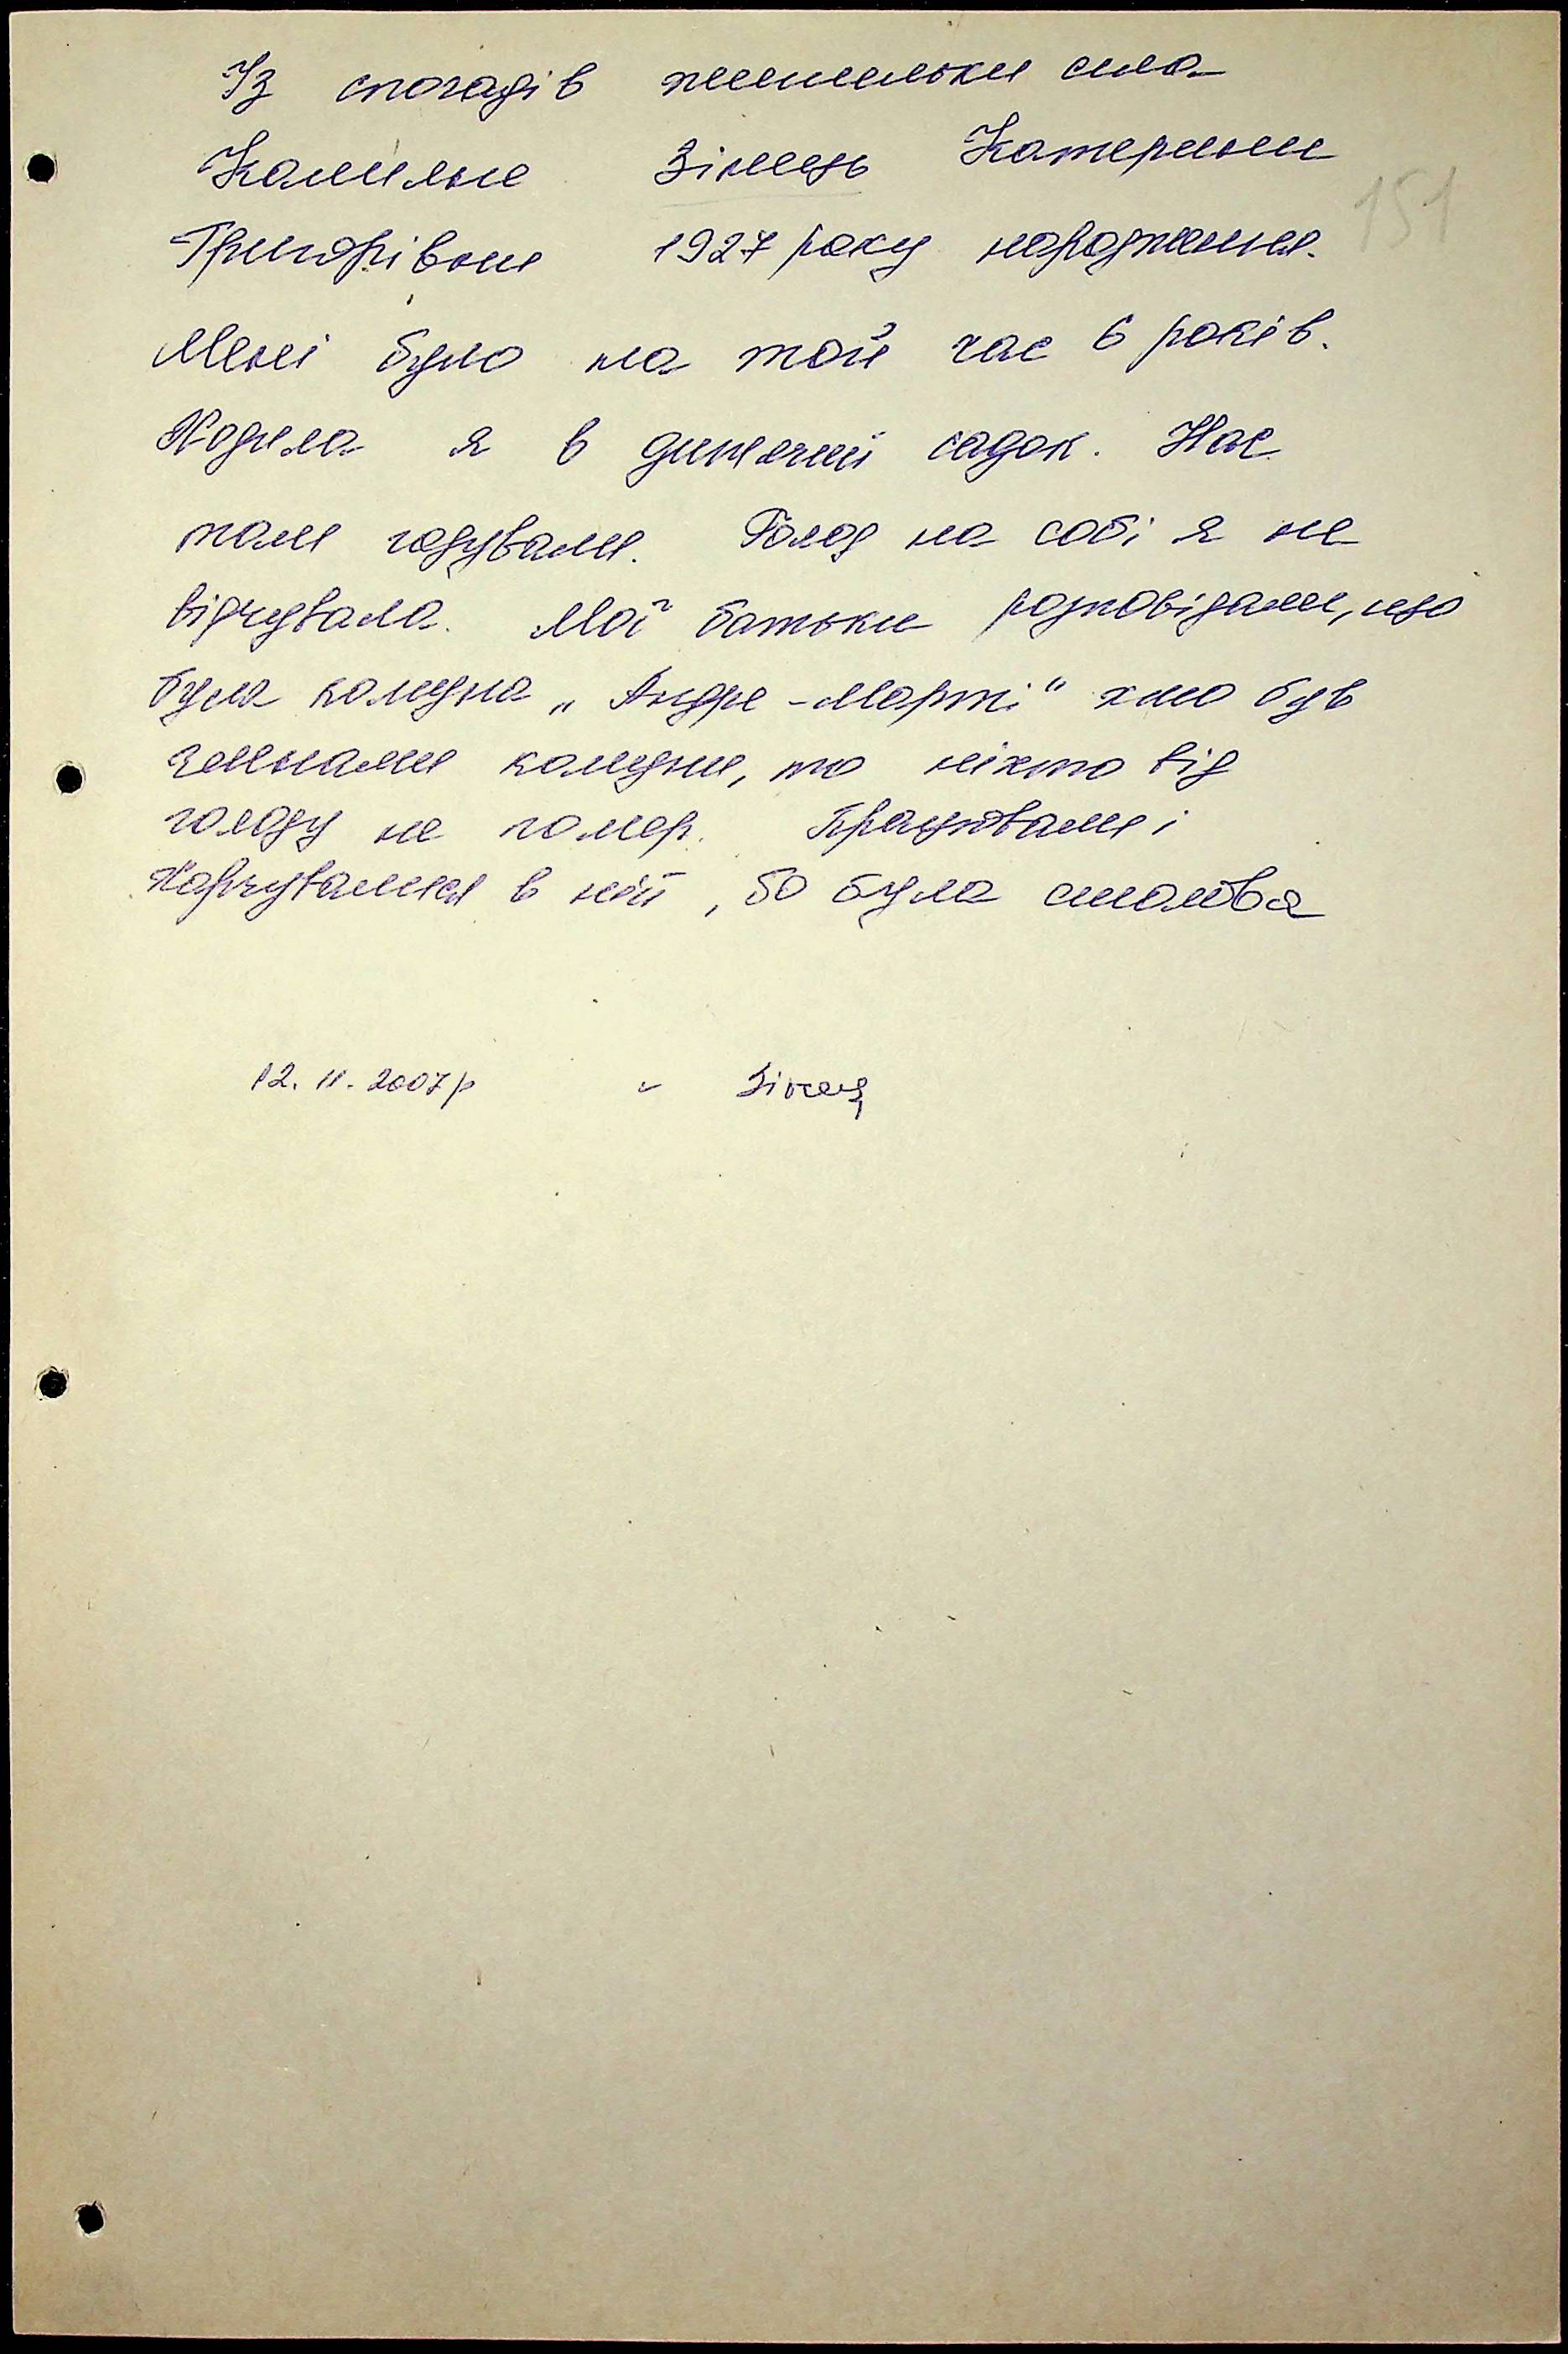 Із спогадів жительки села
Калинівки Зінець Катерини
Григорівни 1927 року народження.
151
Мені було на той час 6 років.
Ходила я в дитячий садок. Нас
там годували. Голод на собі я не
відчувала. Мої батьки розповідали, що
була комуна „Андре-Марті" хто був
членами комуни, то ніхто від
голоду не помер. Працювали і
харчувалися в ній, бо була столова
12.11.2007р Зінец